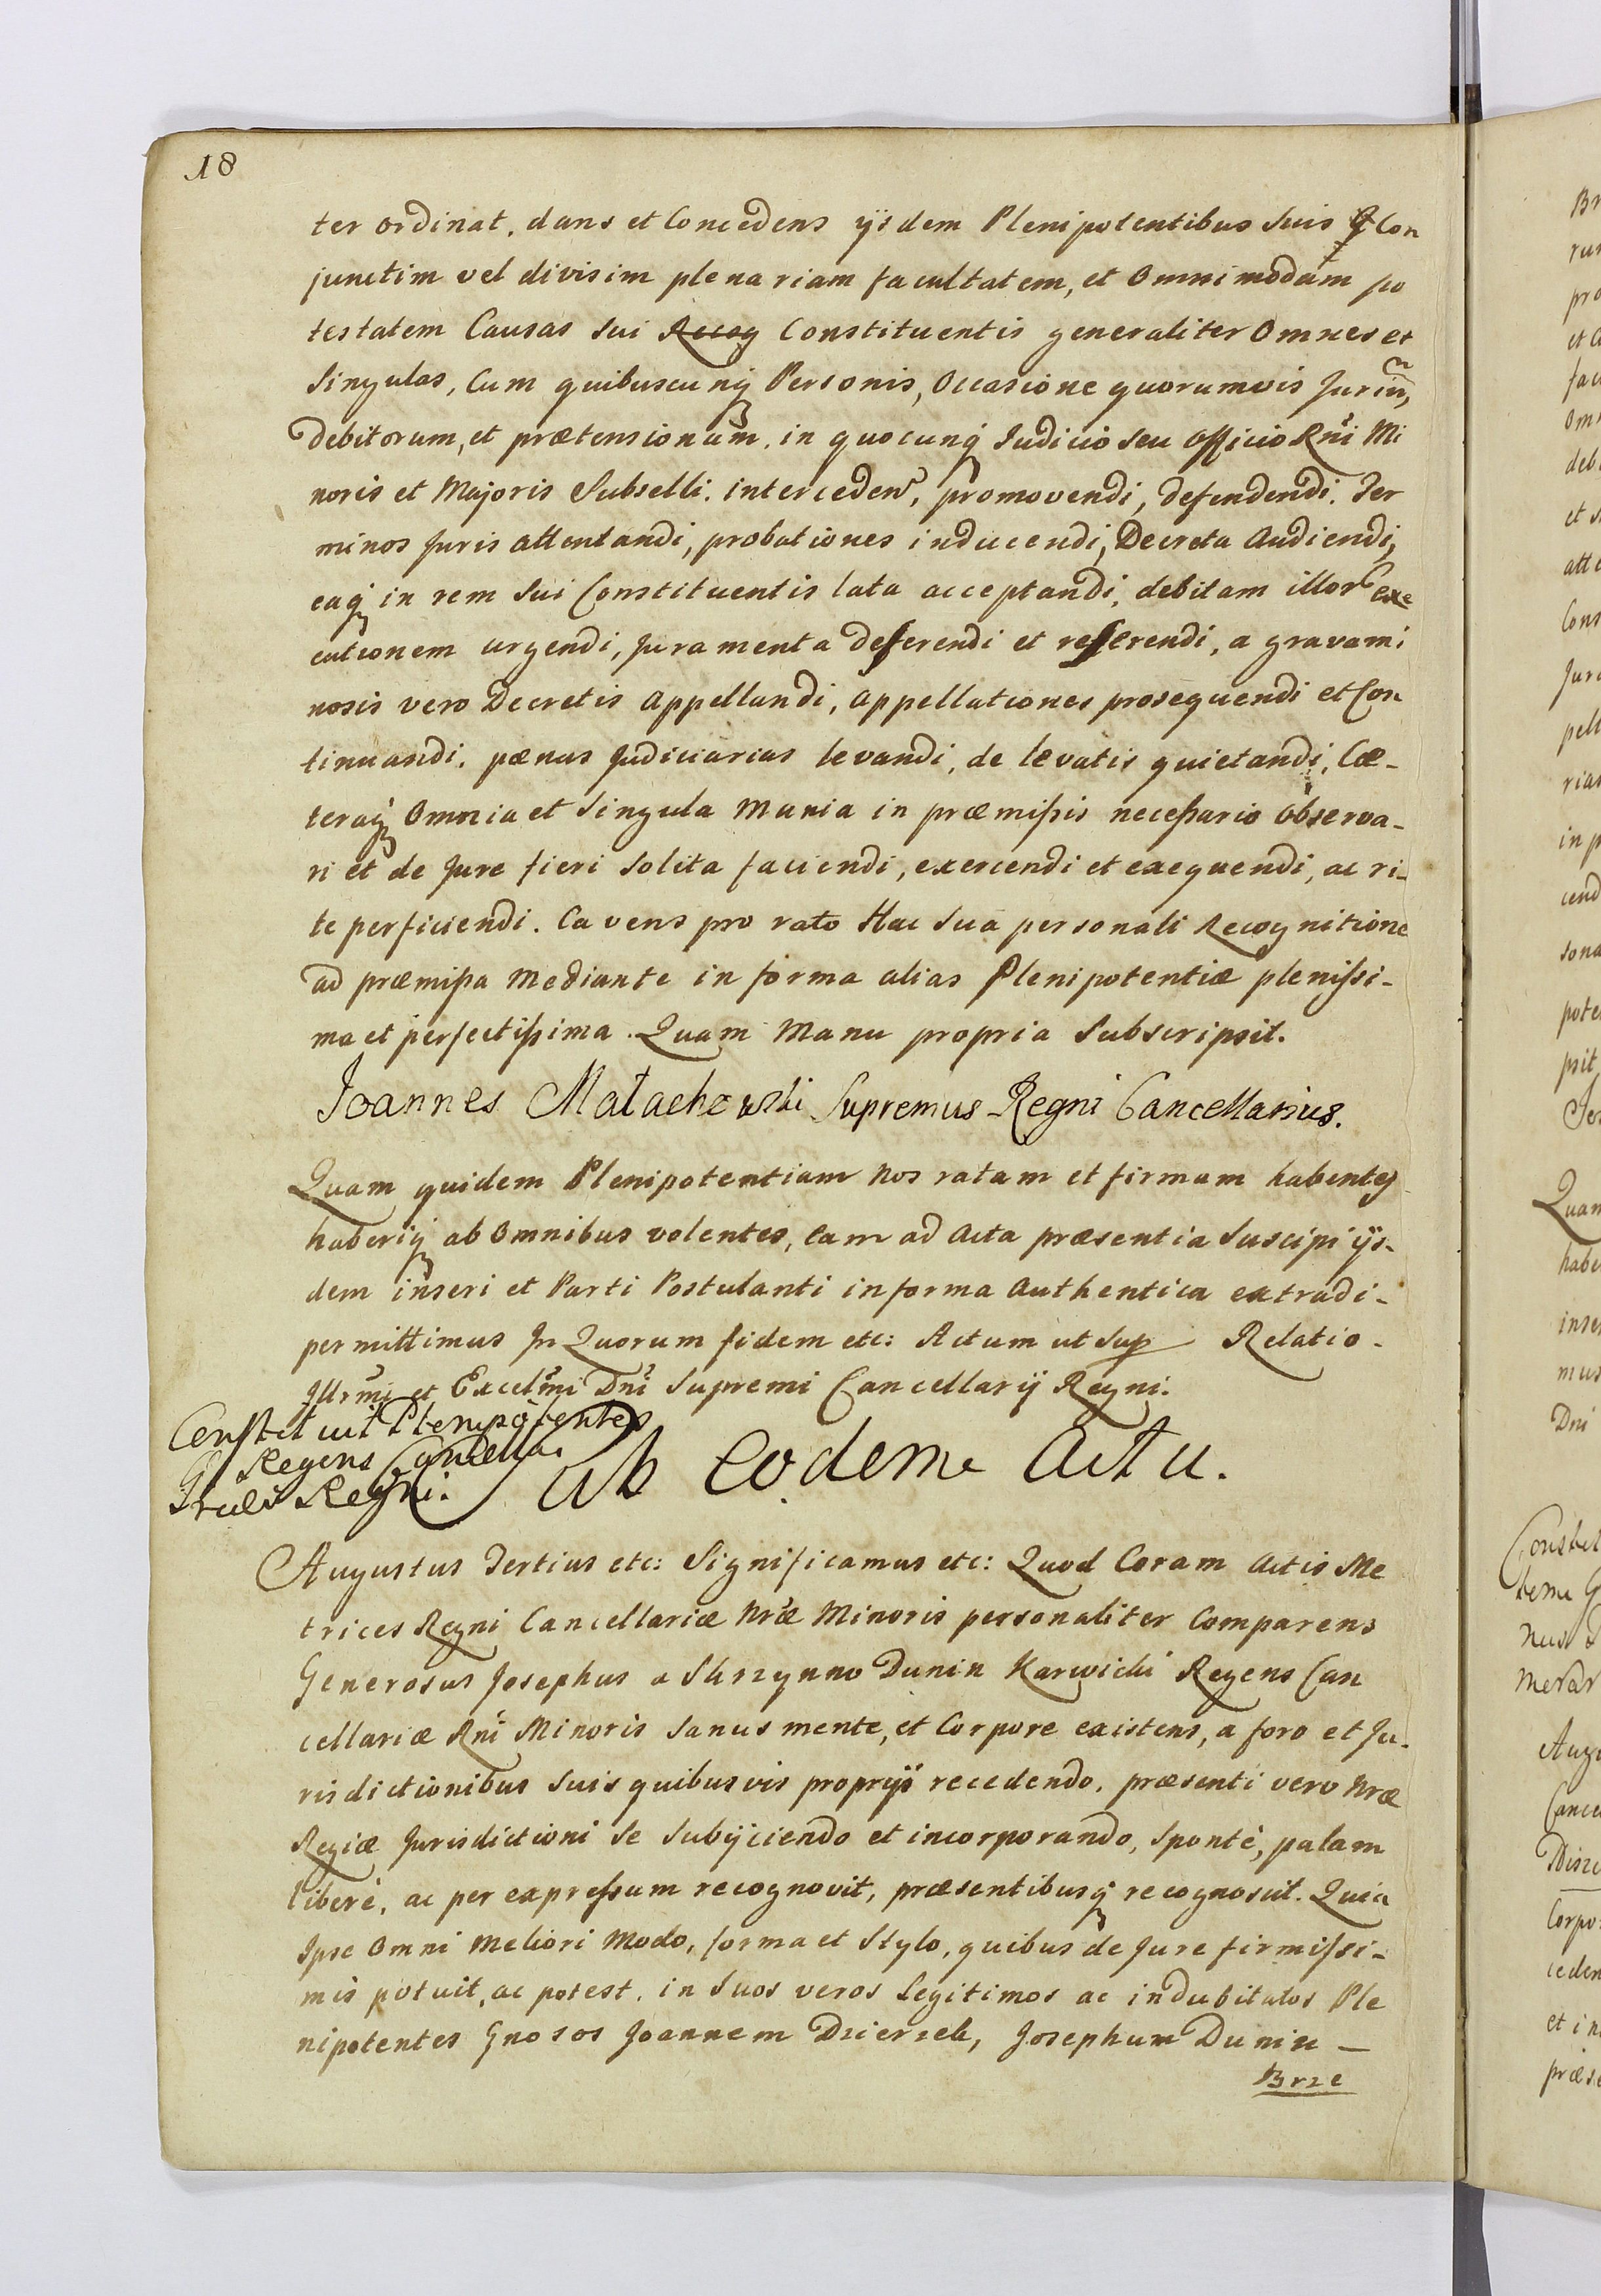 18
ter ordinat. dans et Concedens ijsdem Plenipotentibus suis Con
junctim vel divisim plenariam facultatem, et Omnimodam po
testatem Causas sui Recog Constituentis generaliter Omnes et
Singulas, Cum quibuscunq Personis, Occasione quorumvis Juriu,
Debitorum, et prætensionum, in quocunq Judicio seu Officio Rni Mi
noris et Majoris Subselli. interceden, promovendi, defendendi. Ter
minos Juris attentandi, probationes inducendi, Decreta Audiendi,
eaq in rem sui Constituentis lata acceptandi, debitam illor exe
cutionem urgendi, Juramenta deferendi et referendi, a gravami
nosis vero Decretis Appellandi, Appellationes prosequendi et Con
tinuandi. pænas Judiciarias levandi, de levatis quietandi, Cæ-
teraq Omnia et Singula Munia in præmissis necessario Observa-
ri et de Jure fieri solita faciendi, exercendi et exequendi, ac ri-
te perficiendi. Cavens pro rato Hac Sua personali Recognitione
ad præmissa Mediante in forma alias Plenipotentiæ plenissi-
ma et perfectissima. Quam Manu propria Subscripsit.
Joannes Małachowski Supremus Regni Cancellarius.
Quam quidem Plenipotentiam Nos ratam et firmam habentes
haberiq ab Omnibus volentes, eam ad Acta præsentia Suscipi ijs-
dem inseri et Parti Postulanti in forma Authentica extradi-
permittimus In Quorum fidem etc: Actum ut Sup Relatio-
Illrmi et Excelmi Dni Supremi Cancellarij Regni.
Constituit Plenipotentes
Regens Cancella
Regni.
Ab eodem Actu.
Augustus Tertius etc: Significamus etc: Quod Coram Actis Me
trices Regni Cancellariæ Nræ Minoris personaliter Comparens
Generosus Josephus a Skrzynno Dunin Karwicki Regens Can
cellariæ Rni Minoris Sanus mente, et Corpore existens, a foro et Ju-
risdictionibus Suis quibusvis proprijs recedendo, præsenti vero Nræ
Regiæ Jurisdictioni Se Subijciendo et incorporando, Spontè, palam
liberè, ac per expressum recognovit, præsentibusq recognoscit. Quia
Ipse Omni Meliori Modo, forma et Stylo, quibus de Jure firmissi-
mis potuit, ac potest, in Suos veros Legitimos ac indubitatos Ple
nipotentes Gnosos Joannem Dzierzek, Josephum Dunin –
Brze